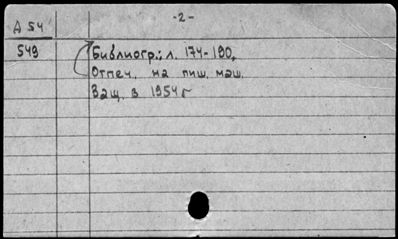 -2-
Д 54
549
Библиогр.: л. 174-190.
Отпеч. на пиш. маш.
Защ. в 1954 г